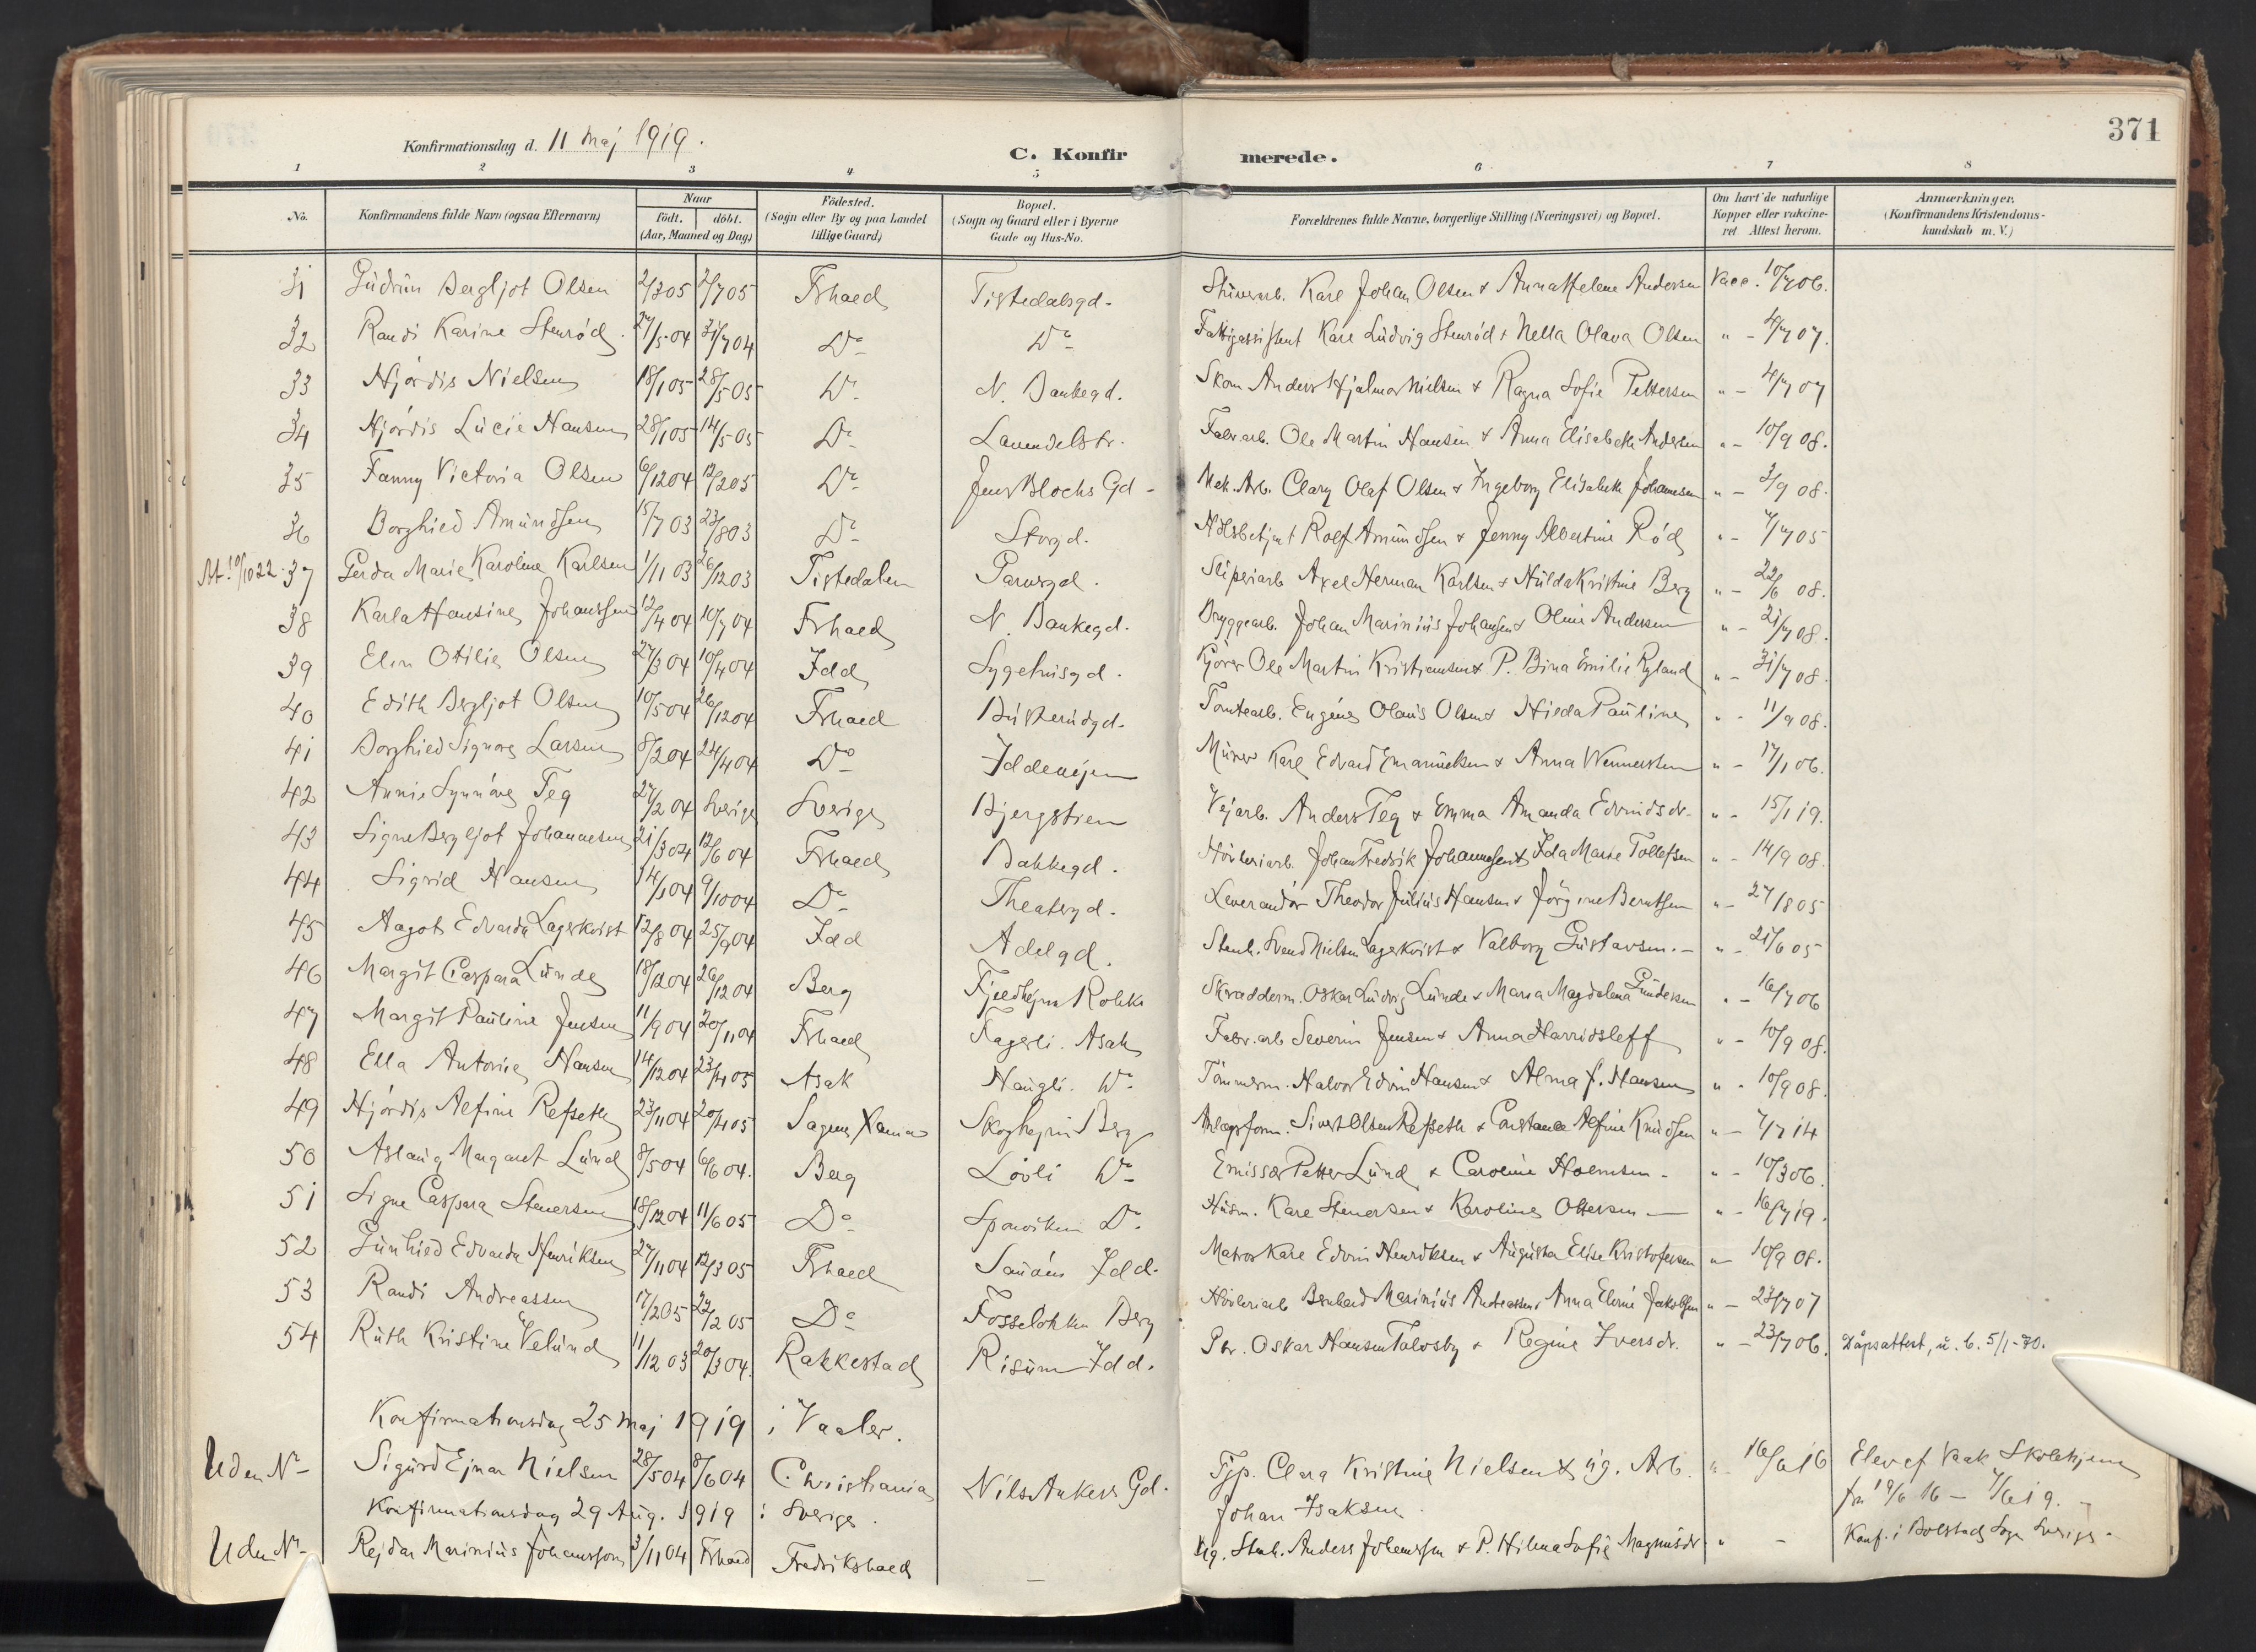 371
Konfirmationsdag d. 11 Maj 1919.
C. Konfirmerede.
1 2 3 4 5 6 7 8
No. Konfirmandens fulde Navn (ogsaa Efternavn) Naar født. døbt. (Aar, Maaned og Dag) Fødested. (Sogn eller By og paa Landet tillige Gaard) Bopæl. (Sogn og Gaard eller i Byerne Gade og Hus-No. Forældrenes fulde Navne, borgerlige Stilling (Næringsvei) og Bopæl. Om havt de naturlige Kopper eller vakcineret Attest herom. Anmærkninger. (Konfirmandens Kristendomskundskab m. V.)
31 Gudrun Bergljot Olsen 2/3 05 2/7 05 Frhald Tistedalsgd. Karl Johan Olsen & Anna Helene Andersen Vacc. 10/7 06.
32 Randi Karine Stenrød 27/5 04 31/7 04 Do Do Fattigassistent Karl Ludvig Stenrød & Nella Olava Olsen " - 4/7 07.
33 Hjørdis Nielsen 18/1 05 28/5 05 Do N. Bankegd. Skom. Anders Hjalmar Nielsen & Ragna Sofie Pettersen " - 4/7 07
34 Hjørdis Lucie Hansen 28/1 05 14/5 05 Do Lavendelstr. Fabr.arb. Ole Martin Hansen & Anna Elisabeth Andersen " - 10/9 08.
35 Fanny Victoria Olsen 6/12 04 12/2 05 Do Jens Blochs Gd - Mek. Arb. Clary Olaf Olsen & Ingeborg Elisabeth Johannesen " - 3/9 08.
36 Borghild Amundsen 15/7 03 23/8 03 Do Storgd. Rolf Amundsen & Jenny Albertine Rød " - 7/7 05
Att. 10/10 22. 37 Gerda Marie Karoline Karlsen 1/11 03 26/12 03 Tistedalen Garvergd. Sliperiarb Axel Herman Karlsen & Hulda Kristine Berg " - 22/6 08.
38 Karla Hansine Johansen 12/4 04 10/7 04 Frhald N. Bankegd. Bryggearb. Johan Marinius Johansen & Oline Andersen " - 21/7 08.
39 Elin Otilie Olsen 27/3 04 10/4 04 Idd Sygehusgd. Kjører Ole Martin Kristiansen & P. Bina Emilie Ryland " - 31/7 08.
40 Edith Bergljot Olsen 10/5 04 26/12 04 Frhald Buskerudgd. Tomtearb. Eugène Olaus Olsen & Hilda Pauline " - 11/9 08.
41 Borghild Signora Larsen 8/2 04 24/4 04 Do Iddeveien Murer Karl Edvard Emanuelsen & Anna Wennersten " - 17/1 06.
42 Annie Synnøve Teg 27/2 04 Sverige Sverige Bjergstien Vejarb. Anders Teg & Emma Amanda Edvindsdr. " - 15/1 19.
43 Signe Bergljot Johannesen 21/3 04 12/6 04 Frhald Bakkegd. Høvleriarb. Johan Fredrik Johannesen & Ida Marie Tollefsen " - 14/9 08.
44 Sigrid Hansen 14/1 04 9/10 04 Do Theatergd. Leverandør Theodor Julius Hansen & Jørgine Berntsen " - 27/8 05
45 Aagot Edvarda Lagerkvist 12/8 04 25/9 04 Idd Adelgd. Stenh. Svend Nielsen Lagerkvist & Valborg Gustavsen. - " - 21/6 05
46 Margit Caspara Lunde 18/12 04 26/12 04 Berg Fjeldhejm Rokke Skrædderm. Oskar Ludvig Lunde & Maria Magdalena Gundersen " - 16/7 06
47 Margit Pauline Jensen 11/9 04 20/11 04 Frhald Fagerli. Asak Fabr.arb Severin Jensen & Anna Harridsleff " - 10/9 08.
48 Ella Antonie Hansen 14/12 04 23/4 05 Asak Haugli. Do Tømmerm. Halvor Edvin Hansen & Alma J. Hansen " - 10/9 08.
49 Hjørdis Alfine Refseth 23/11 04 20/4 05 Skoghejm Berg Anlægsform. Sivert Olsen Refseth & Constance Alfine Knudsen " - 7/7 14
50 Aslaug Margaret Lund 8/5 04 6/6 04. Berg Løvli Do Emissær Petter Lund & Caroline Holmsen - " - 10/3 06.
51 Signe Caspara Stenersen 18/12 04 11/6 05 Do Sponviken Do. Husm. Karl Stenersen & Karoline Ottersen - " - 16/4 19.
52 Gunhild Edvarda Henriksen 27/11 04 12/3 05 Frhald Sauøen Idd. Matros Karl Edvin Henriksen & Augusta Elise Kristofersen " - 10/9 08.
53 Randi Andreassen 17/2 05 27/2 05 Do Fosseløkken Berg Høvleriarb Bernhard Marinius Andreassen & Anna Elvine Jakobsen " - 23/7 07
54 Ruth Kristine Velund 11/12 03 20/3 04. Rakkestad Risum Idd. Oskar Hansen Talvsby & Regine Iversdr. " - 23/7 06. Dåpsattest, u. b. 5/1-70.
Konfirmationsdag 25 Maj 1919 i Vaaler.
Uden No - Sigurd Ejnar Nielsen 28/5 04 8/6 04 Christiania Nils Ankers Gd. Tjp. Clara Kristine Nielsen & ug. Arb. Johan Isaksen " - 16/6 16 Elev af Vaak Skolehjem fra 19/6 16 - 4/6 19. -
Konfirmationsdag 29 Aug. 1919 i Sverige.
Uden No - Rejdar Marinius Johansson 3/11 04 Frhald Fredrikshald - Ug. Stenh. Anders Johansson & P. Hilma Sofie Magnusdr " - Konf. i Bolstad Sogn Sverige.